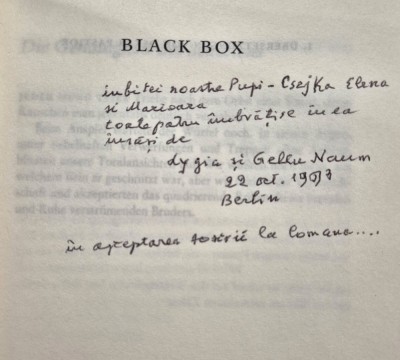 BLACK BOX
iubitei noastre Pupi - Csejka Elena
si Marioara
toate patru îmbrățișe în ea
înșăși de
Lygia și Gellu Naum
22 oct. 1993
Berlin
în așteptarea sosirii la Comana....